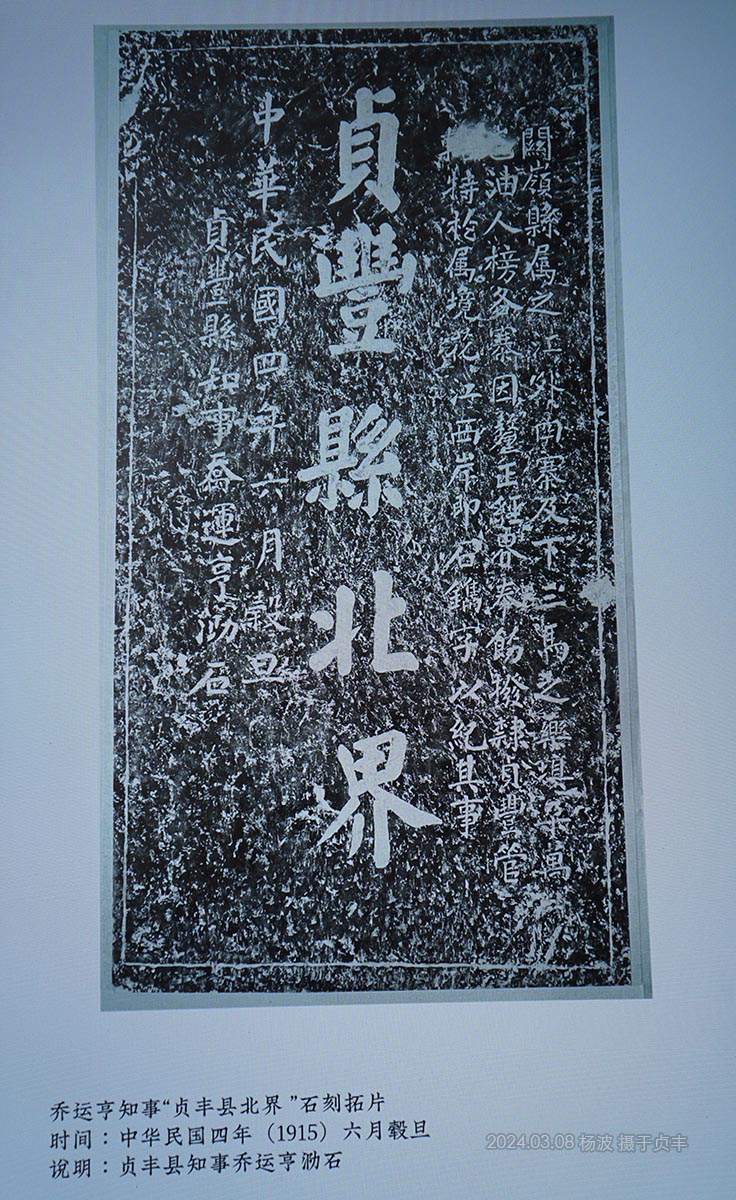 關嶺縣属之江外四寨及下三馬之藥萬
油人榜各寨因釐正經界奉飭撥隸貞豐管
特於属境花江西岸即石鐫字以紀其事
貞豐縣北界
中華民國四年六月穀旦
貞豐縣知事喬運亨泐石
乔运亨知事“贞丰县北界”石刻拓片
时间：中华民国四年（1915）六月毂旦
说明：贞丰县知事乔运亨泐石
2024.03.08 杨波 摄于贞丰